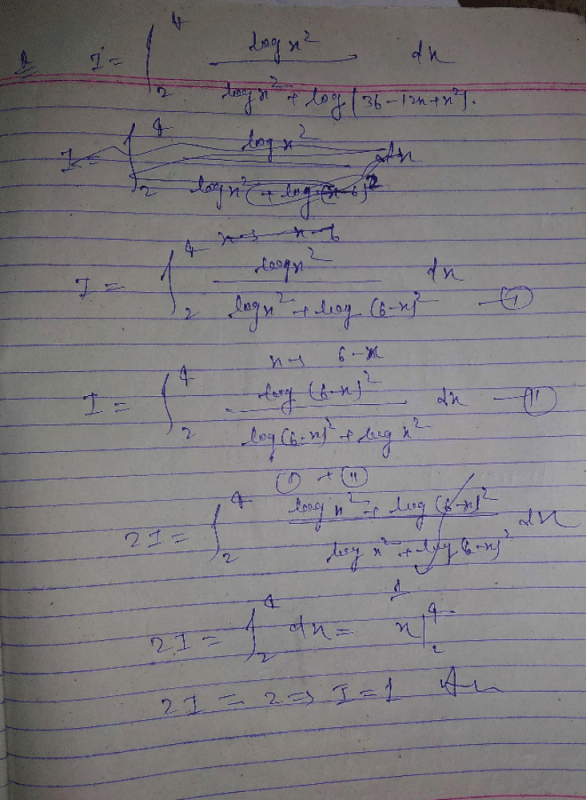 Q I = ∫₂⁴ log x² / log x² + log (36 - 12x + x²). dx
I = ∫₂⁴ log x² / log x² + log (x-6)² dx
x → x-6
I = ∫₂⁴ log x² / log x² + log (6-x)² dx — (I)
x → 6-x
I = ∫₂⁴ log (6-x)² / log (6-x)² + log x² dx — (II)
(I) + (II)
2I = ∫₂⁴ log x² + log (6-x)² / log x² + log (6-x)² dx
2I = ∫₂⁴ dx = x |₂⁴
2I = 2 ⇒ I = 1 An